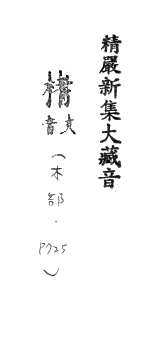 精嚴新集大藏音
音
(木部.P725)